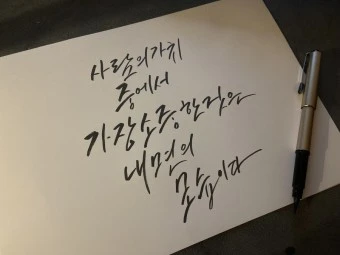 사람의가치
중에서
가장소중한것은
내면의
모습이다